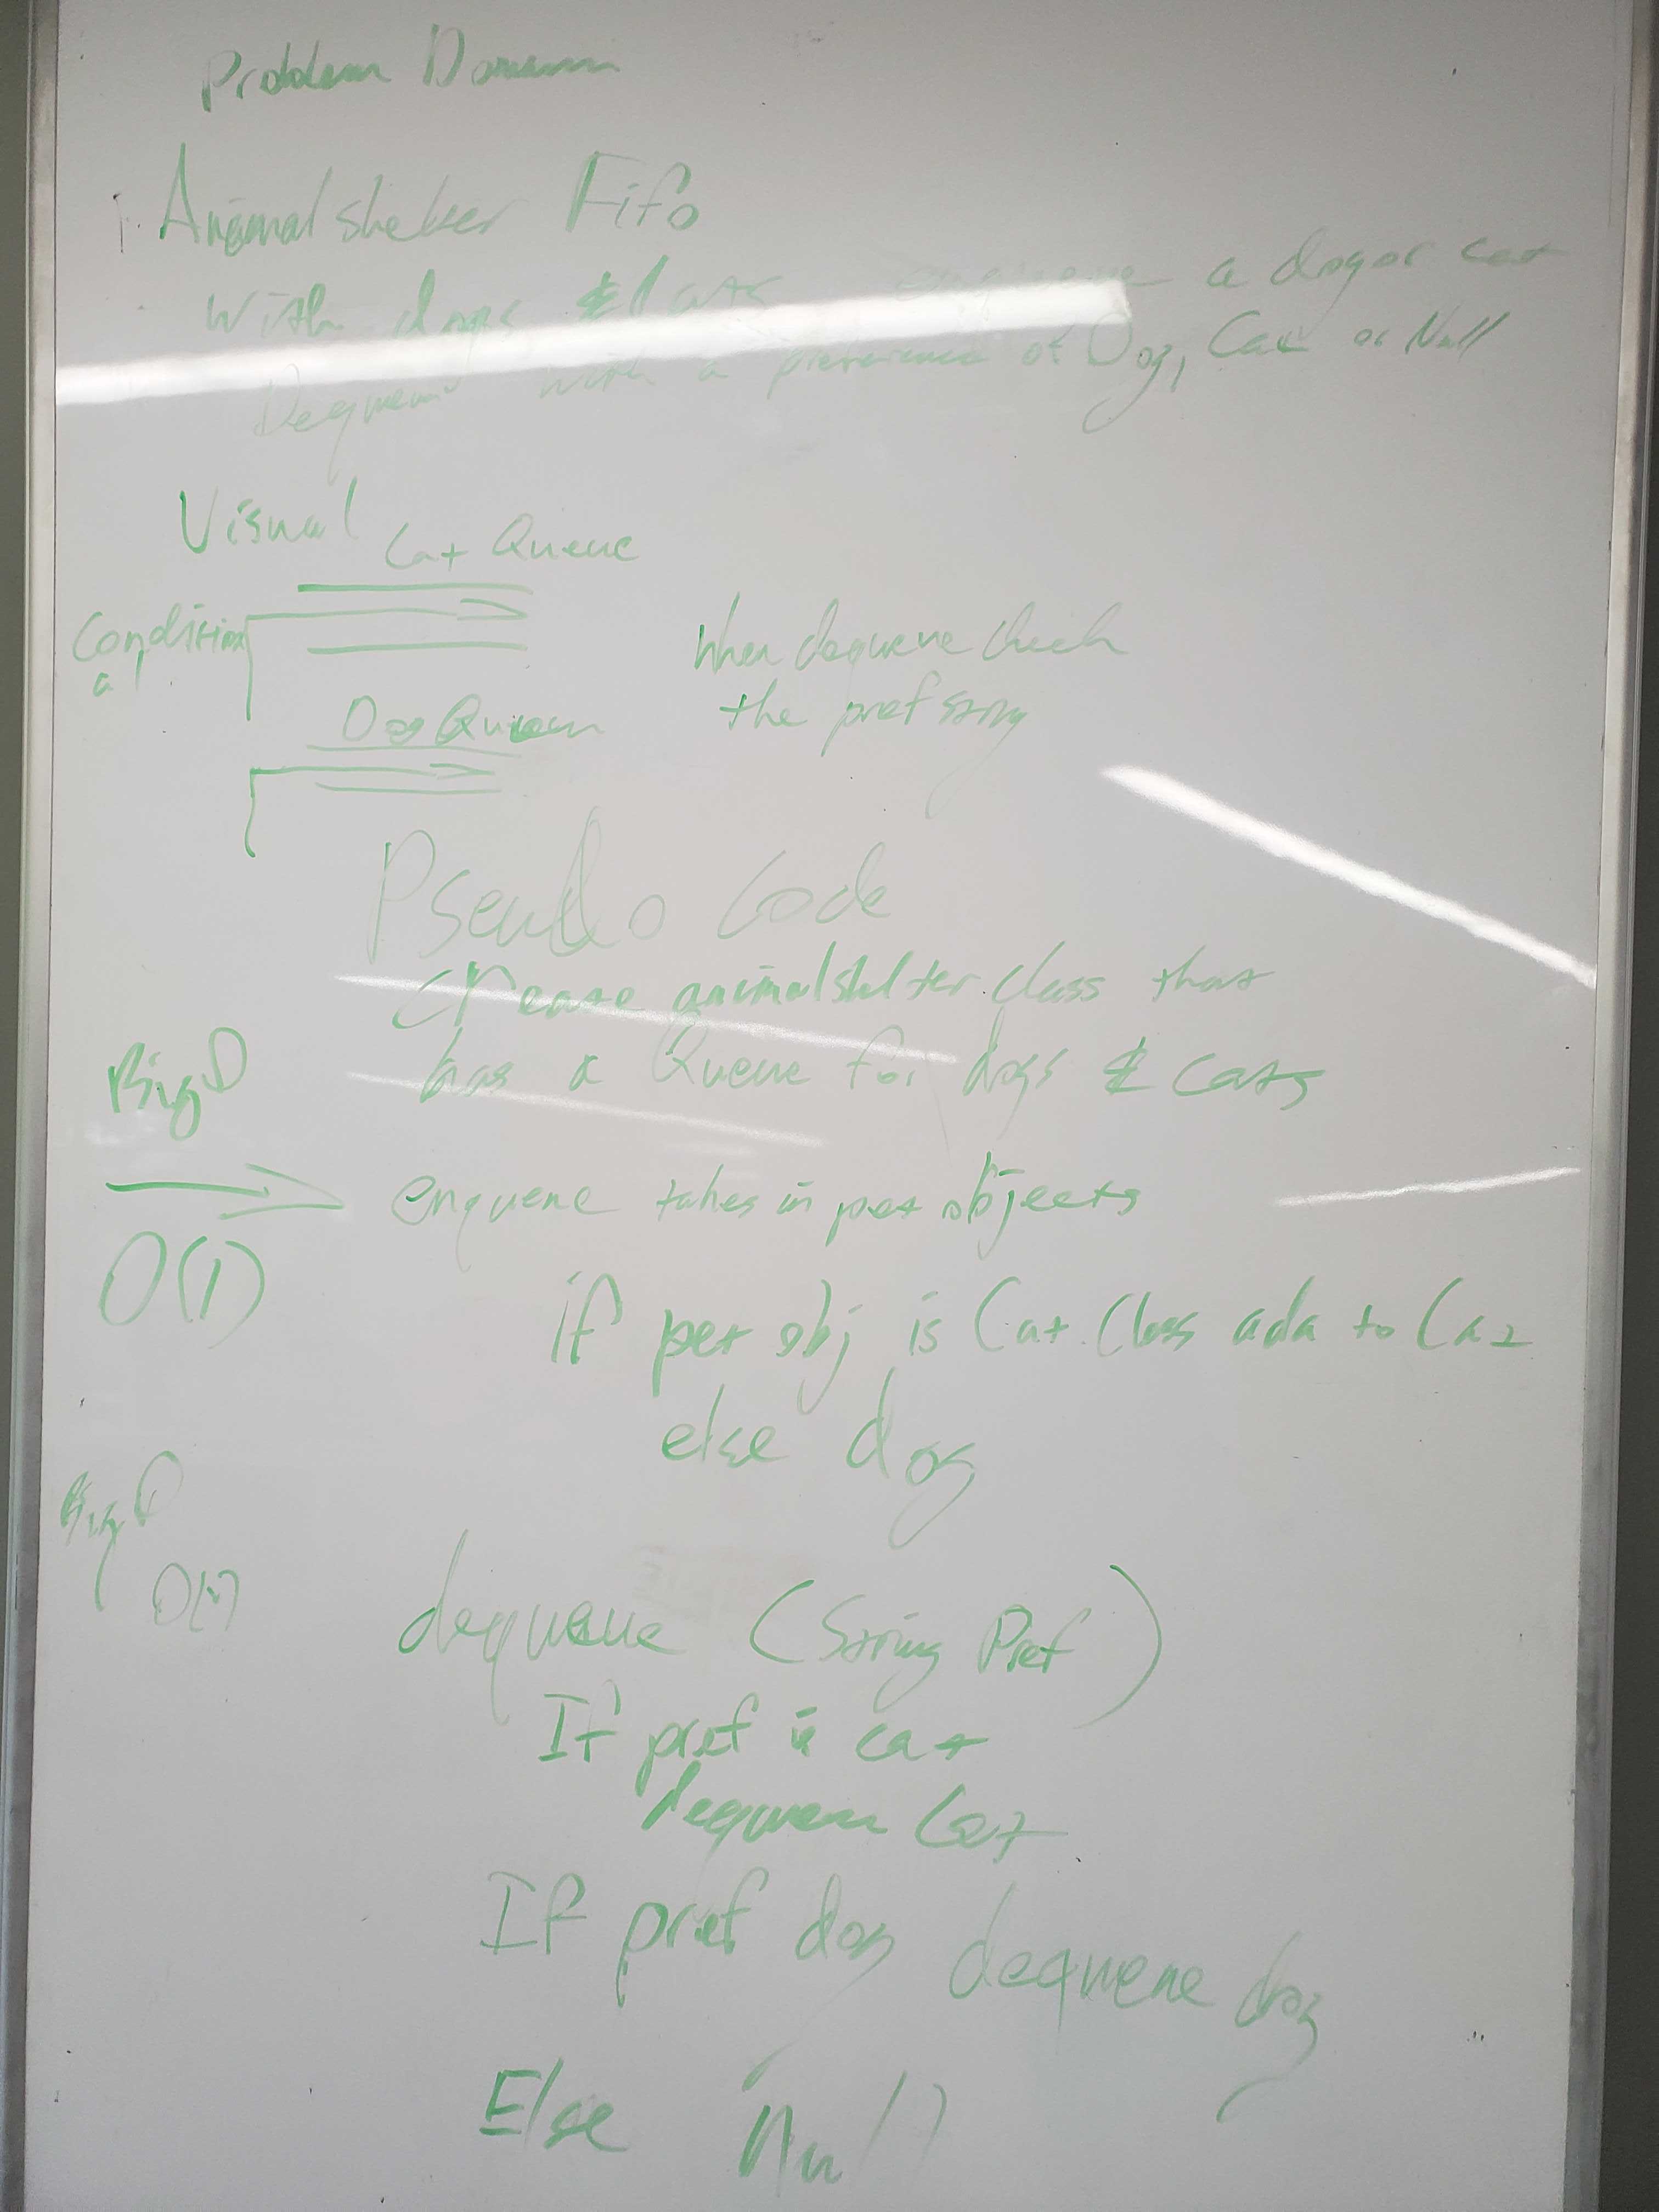 Problem Domain
Animalshelter Fifo
with dogs & Cats enqueue a dog or cat
Dequeue with a preference of Dog, Cat or Null
Visual
Cat Queue
Condition
al
When dequeue check
the pref string
Dog Queue
Pseudo Code
Create animalshelter class that
has a Queue for dogs & Cats
Big O
enqueue takes in pet objects
O(1)
if pet obj is Cat Class add to Cat
else dog
Big O
O(1)
dequeue (String Pref)
If pref is cat
dequeue Cat
If pref dog dequeue dog
Else null